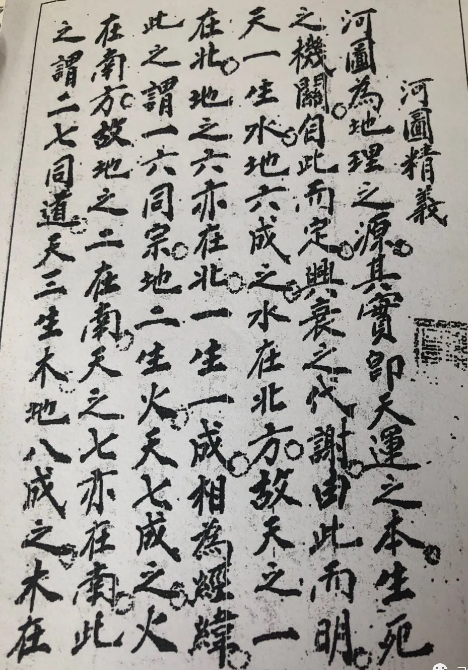 河圖精義
河圖為地理之源其實即天運之本生死
之機關自此而定興衰之代謝由此而明
天一生水地六成之水在北方故天之一
在北地之六亦在北一生一成相為經緯
此之謂一六同宗地二生火天七成之火
在南方故地之二在南天之七亦在南此
之謂二七同道天三生木地八成之木在